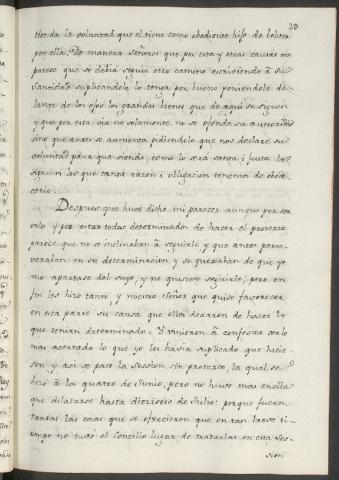 23
tienda la voluntad que el tiene como obediente hijo de
por ella. De manera Señores que por esta y otras causas me
parece que se debia seguir otro camino escriviendo à su
Santidad suplicandole lo tenga por bueno poniendole de-
lante de los ojos los grandes bienes que de aqui se siguen
y que por esta via no solamente no se ofende su autoridad
sino que antes se aumenta pidiendole que nos declare su
voluntad para que siendo, como lo serà santa i justa la
sigan los que tanta razon i obligacion tenemos de obede-
cerle.
Despues que huve dicho mi parecer aunque por ser
solo y por estar todos determinados de hacer el protexto
parece que no se inclinaban à seguirle y que antes perse-
veraban en su determinacion y se quexaban de que yo
me apartase del suyo, y no quisiese seguirle, pero en
fin les hizo tanto, y nuestro Señor que quiso favorecer
en esta parte su causa que ellos dexaron de hacer lo
que tenian determinado. Y vinieron à confesar ser lo
mas acertado lo que yo les havia suplicado que hicie-
sen y asi se pasò la Session sin protexto, la qual se
hizo à los quatro de Junio, pero no huvo mas en ella
que dilatarse hasta dieziseis de Julio: porque fueron
tantas las cosas que se ofrecieron que en tan breve ti-
empo no tuvo el Concilio lugar de tratarlas en esta Ses-
sion